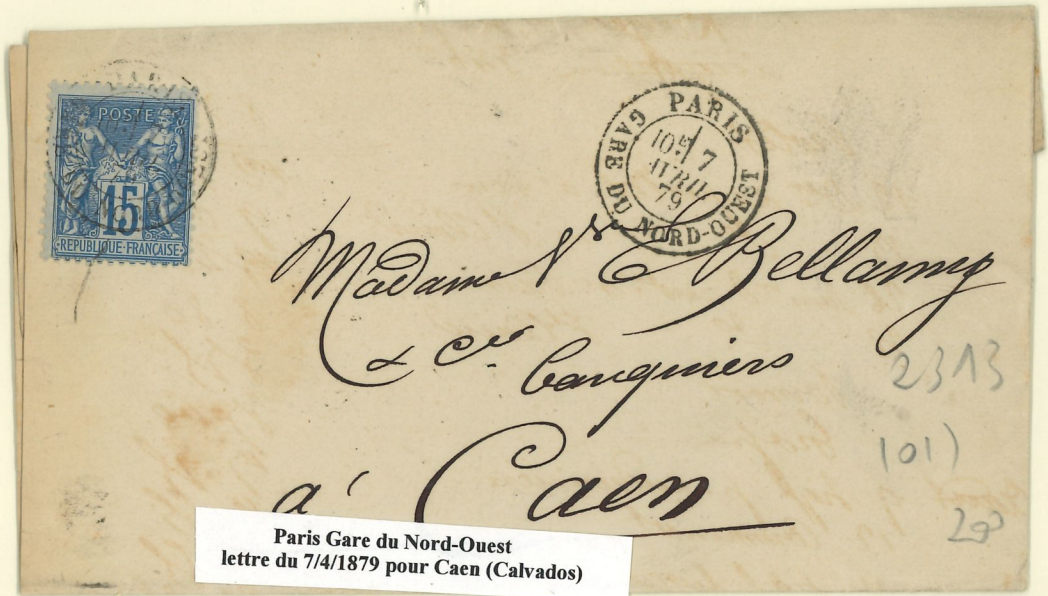 POSTE
15
RÉPUBLIQUE FRANÇAISE
PARIS
GARE DU NORD-OUEST
7
AVRIL
79
Madame Vve C Bellamy
& Cie banquiers
à Caen
2313
101)
Paris Gare du Nord-Ouest
lettre du 7/4/1879 pour Caen (Calvados)